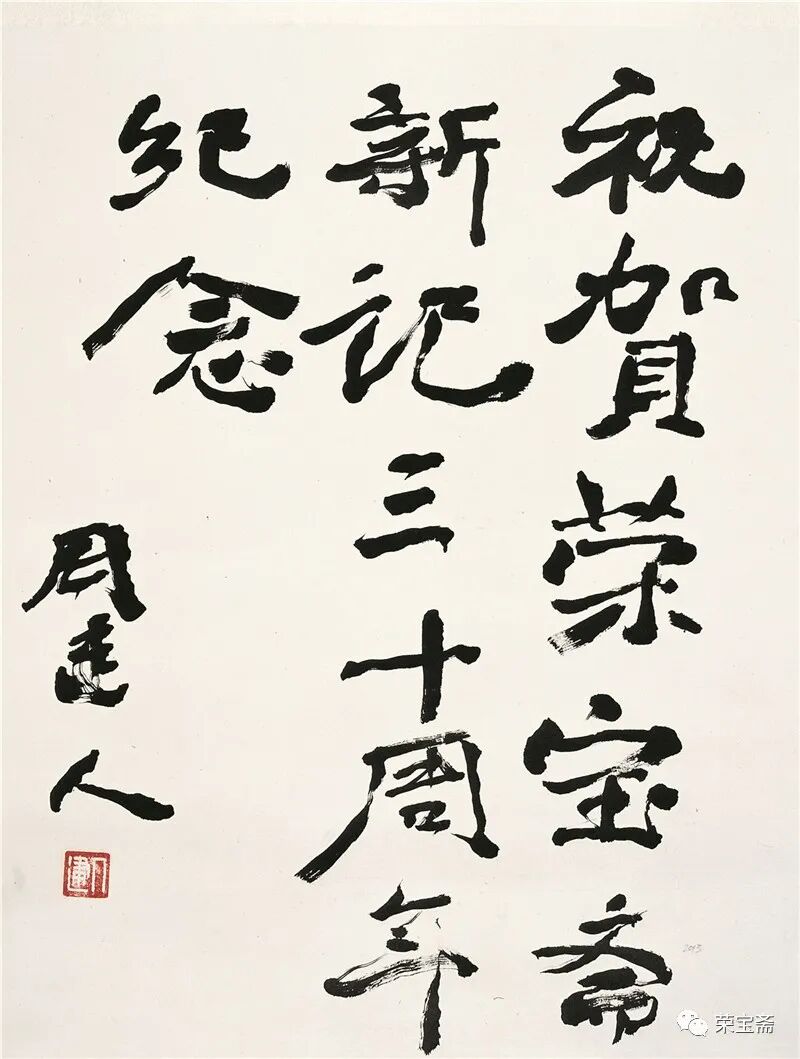 祝賀荣宝斋
新记三十周年
纪念
周建人
荣宝斋